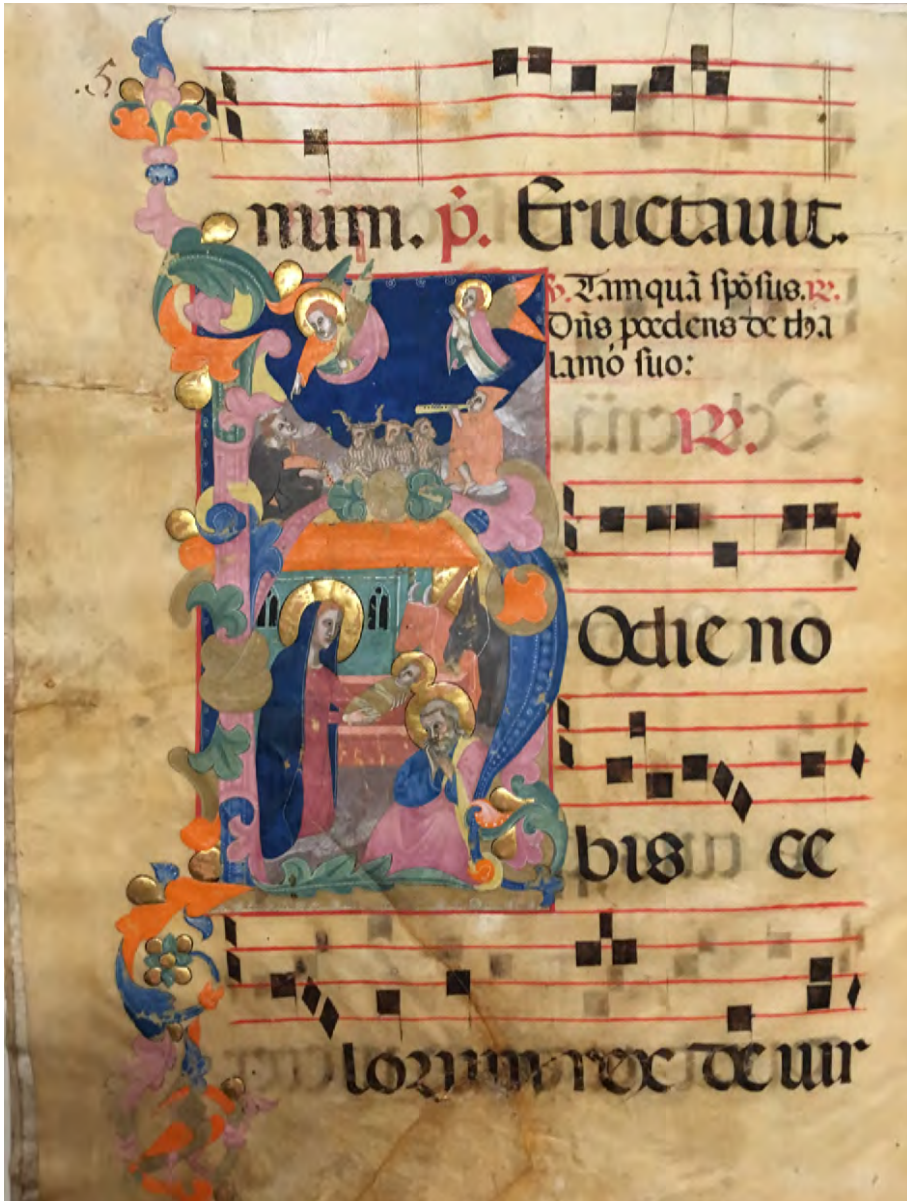 .5.
num. p̄. Eructauit.
℣. Tamquā spōsus. ℟.
Dn̄s p̄cedens de tha
lamo suo:
℟.
Odie no
bis ce
lorum rex de uir